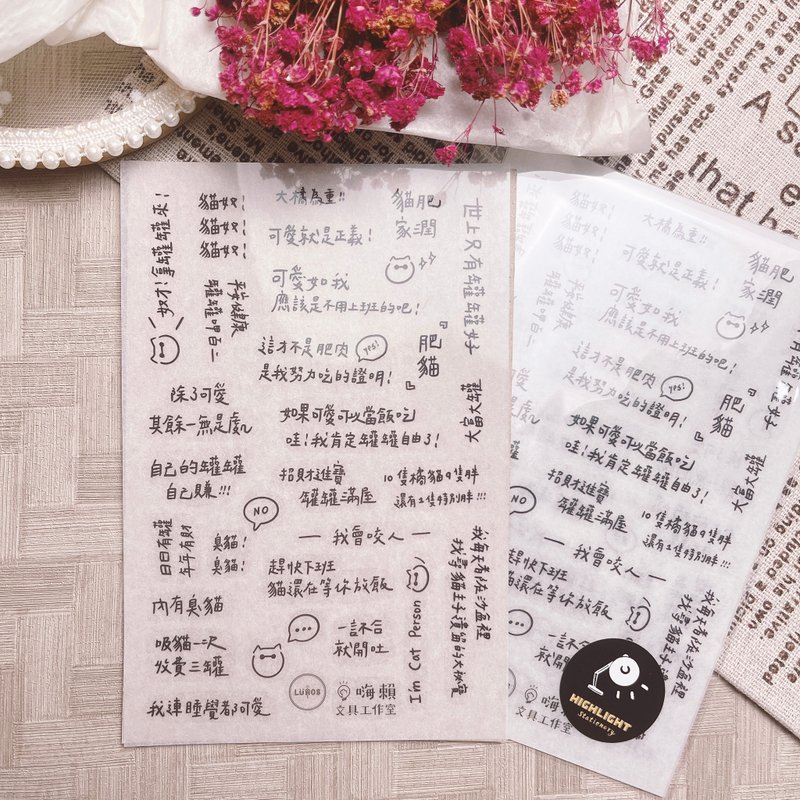 奴才!拿罐罐來!
貓奴!
貓奴!
貓奴!
平安健康
罐罐呷百二
大橘為重!!
可愛就是正義!
貓肥
家潤
可愛如我
應該是不用上班的吧!
世上只有罐罐好
這才不是肥肉
yes!
是我努力吃的證明!
『肥貓』
除了可愛
其餘一無是處~
如果可愛可以當飯吃
哇!我肯定罐罐自由了!
大富大罐
自己的罐罐
自己賺!!!
招財進寶
罐罐滿屋
10隻橘貓9隻胖
還有1隻特別胖!!!
NO
日日有罐
年年有財
臭貓!
臭貓!
— 我會咬人 —
趕快下班
貓還在等你放飯
我每天看似在沙盆裡
找尋貓主子遺留的大秘寶
內有臭貓
吸貓一次
收費三罐
一言不合
就開吐
I'm Cat Person
我連睡覺都可愛
LUNOS
嗨賴
文具工作室
大橘為重!!
可愛就是正義!
貓肥
家潤
可愛如我
應該是不用上班的吧!
這才不是肥肉
yes!
是我努力吃的證明!
『肥貓』
如果可愛可以當飯吃
哇!我肯定罐罐自由了!
大富大罐
招財進寶
罐罐滿屋
10隻橘貓9隻胖
還有1隻特別胖!!!
NO
— 我會咬人 —
趕快下班
貓還在等你放飯
一言不合
就開吐
嗨賴
文具工作室
HIGHLIGHT
Stationery
A
that